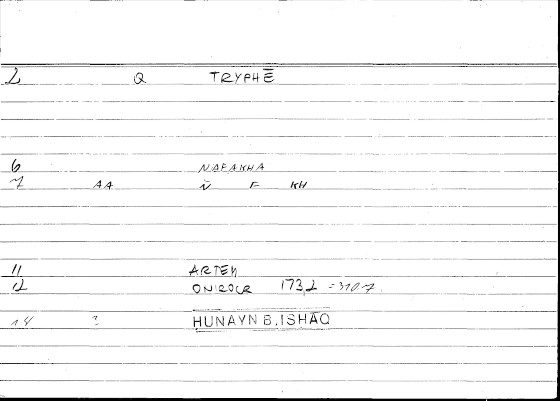 2 Q TRYPHĒ
6 NAFAKHA
7 AA N F KH
11 ARTEM
12 ONIROCR 173,2 = 310.7
14 ? HUNAYN B. ISHĀQ